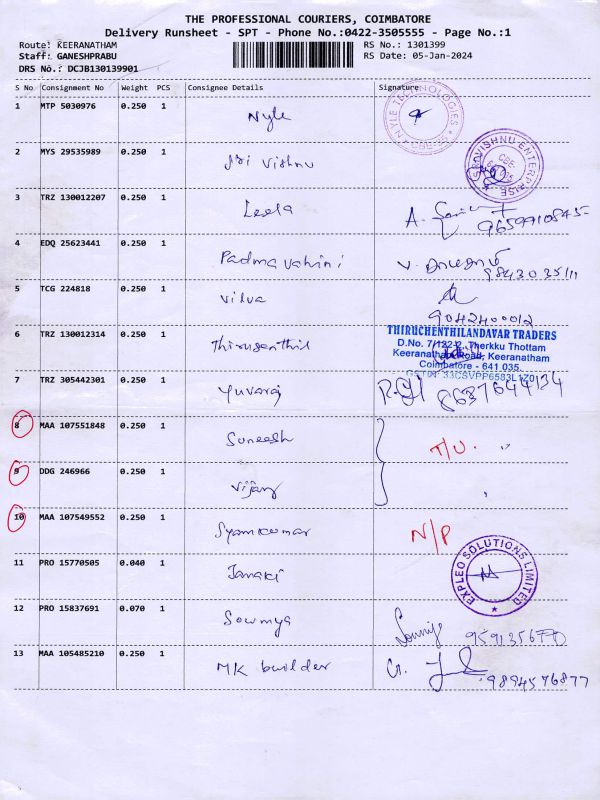 THE PROFESSIONAL COURIERS, COIMBATORE
Delivery Runsheet - SPT - Phone No.:0422-3505555 - Page No.:1
Route: KEERANATHAM RS No.: 1301399
Staff: GANESHPRABU RS Date: 05-Jan-2024
DRS No.: DCJB130139901
S No Consignment No Weight PCS Consignee Details Signature
1 MTP 5030976 0.250 1 Nyle NYLE TECHNOLOGIES CBE-35
2 MYS 29535989 0.250 1 Sri Vishnu SRI VISHNU ENTERPRISE CBE
3 TRZ 130012207 0.250 1 Leela A. 9659910845
4 EDQ 25623441 0.250 1 Padmavahini V. 9843035111
5 TCG 224818 0.250 1 Vilva
9042400012
6 TRZ 130012314 0.250 1 Thirusenthil THIRUCHENTHILANDAVAR TRADERS
D.No. 7/122-2, Therkku Thottam
Keeranatham Road, Keeranatham
Coimbatore - 641 035.
GSTIN: 33CSVPP6583L1Z0
7 TRZ 305442301 0.250 1 Yuvaraj 8637644134
8 MAA 107551848 0.250 1 Suneesh T/U. "
9 DDG 246966 0.250 1 Vijay "
10 MAA 107549552 0.250 1 Syamkumar N/P
11 PRO 15770505 0.040 1 Janaki EXPLEO SOLUTIONS LIMITED
12 PRO 15837691 0.070 1 Sowmya Sowmya
13 MAA 105485210 0.250 1 MK builder G. 9894576877